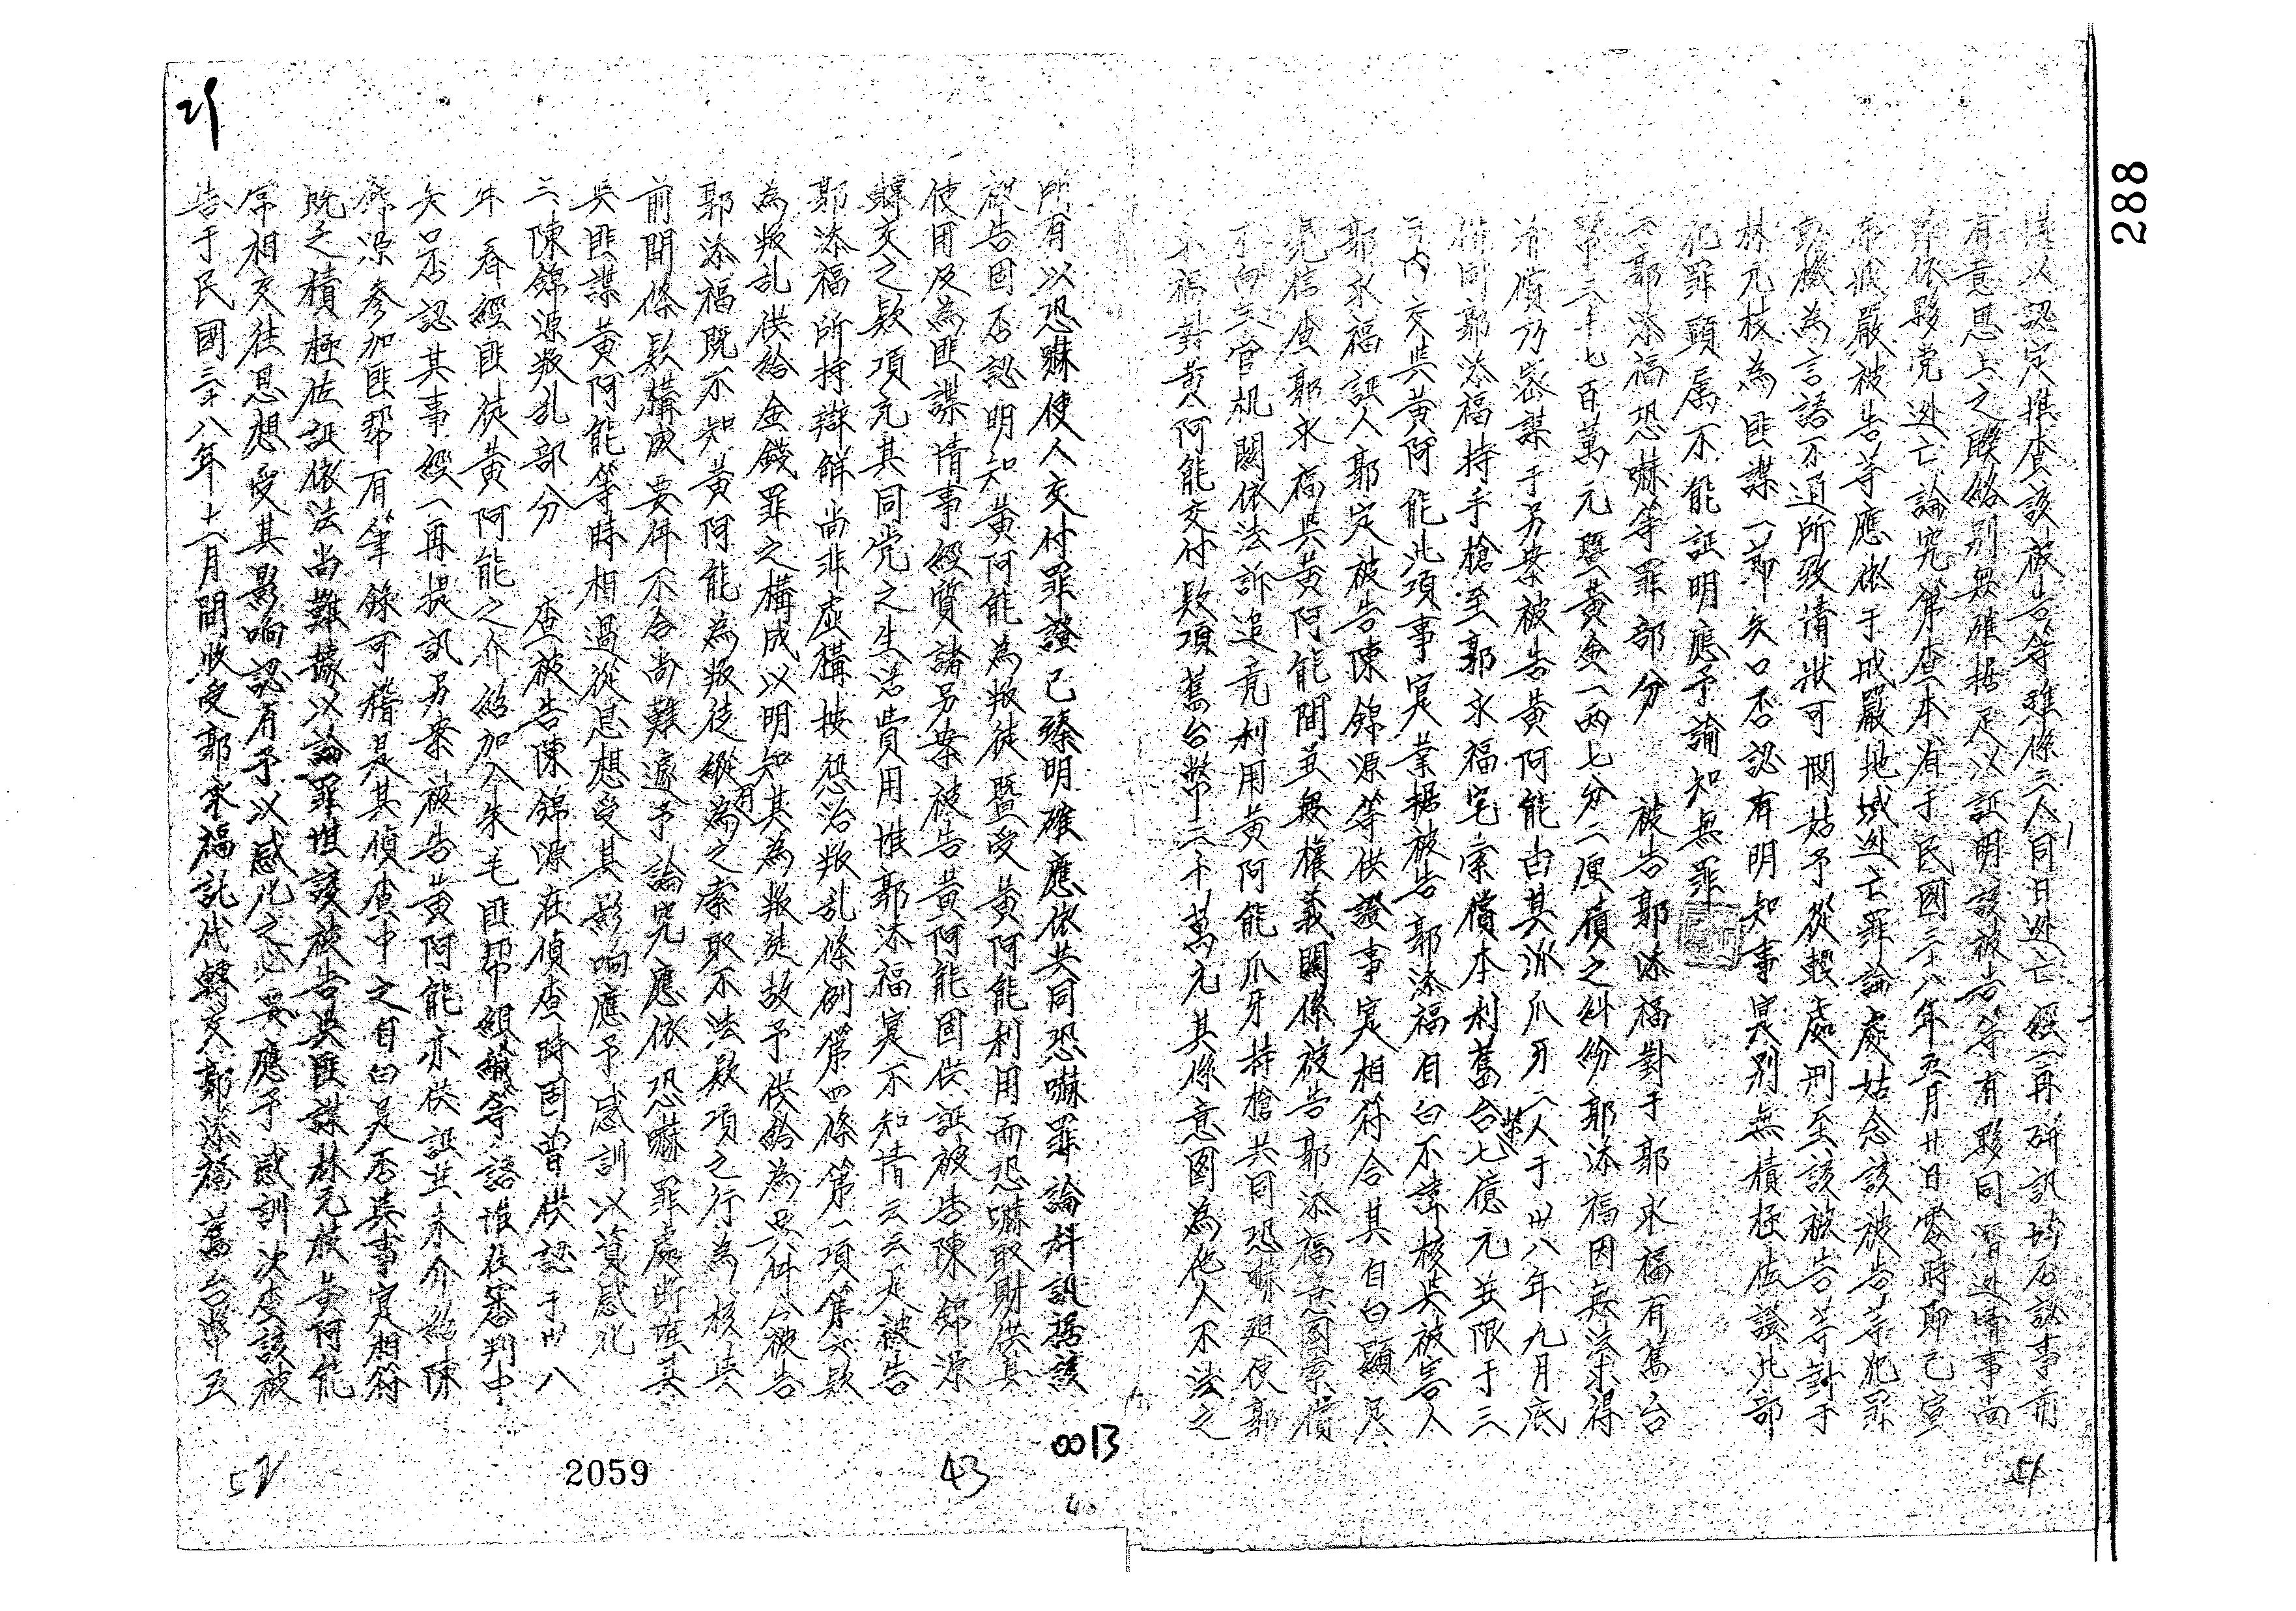 288
據以認定據查該被告等雖係三人同日逃亡經一再研訊均否認事前
有意思上之聯絡別無確据足以証明該被告等有夥同潛逃情事尚
難依夥党逃亡論究第查本省于民國三十八年五月廿日零時即已宣
布戒嚴被告等應依于戒嚴地域逃亡罪論處姑念該被告等犯罪
動機為言語不通所致情狀可憫姑予從輕處刑至該被告等對于
林元枝為匪諜一節矢口否認有明知事實別無積極佐證此部
犯罪顯屬不能証明應予諭知無罪
郭添福恐嚇等罪部分 被告郭添福對于郭永福有舊台
幣二千七百萬元暨黃金一両七分二厘債之糾紛郭添福因無法求得
清償乃密謀于另案被告黃阿能由其派爪牙二人于卅八年九月底
偕同郭添福持手槍至郭永福宅索償本利舊台幣七億元並限于三
日內交與黃阿能此項事實業据被告郭添福自白不諱核與被害人
郭永福証人郭定被告陳錦源等供證事實相符合其自白顯足
見信查郭永福與黃阿能間並無權義關係被告郭添福意圖索償
不向主官机關依法訴追竟利用黃阿能爪牙持槍共同恐嚇迫使郭
永福對黃阿能交付欵項舊台幣三千萬元其係意圖為他人不法之
51
所有以恐嚇使人交付罪證已臻明確應依共同恐嚇罪論科訊据該
被告固否認明知黃阿能為叛徒暨受黃阿能利用而恐嚇取財供其
使用及為匪諜情事經質諸另案被告黃阿能固供証被告陳錦源
轉交之欵項充其同党之生活費用惟郭添福實不知情云云是被告
郭添福所持辯解尚非虛構按懲治叛乱條例第四條第一項第六欵
為叛乱供給金錢罪之構成以明知其為叛徒故予供給為要件今被告
郭添福既不知黃阿能為叛徒縱有為之索取不法欵項之行為核與
前開條欵構成要件不合尚難遽予論究應依恐嚇罪處斷惟其
與匪諜黃阿能等時相過從思想受其影响應予感訓以資感化
二、陳錦源叛乱部分 查被告陳錦源在偵查時固曾供認于卅八
年春經匪徒黃阿能之介紹加入朱毛匪幫組織等語惟在審判中
矢口否認其事經一再提訊另案被告黃阿能亦供証並未介紹陳
錦源參加匪幫有筆錄可稽是其偵查中之自白是否與事實相符
既乏積極佐証依法尚難據以論罪惟該被告與匪諜林元枝黃阿能
常相交往思想受其影响認有予以感化之必要應予感訓次查該被
告于民國三十八年十一月間收受郭永福託代轉交郭添福舊台幣五
0013
43
2059
52